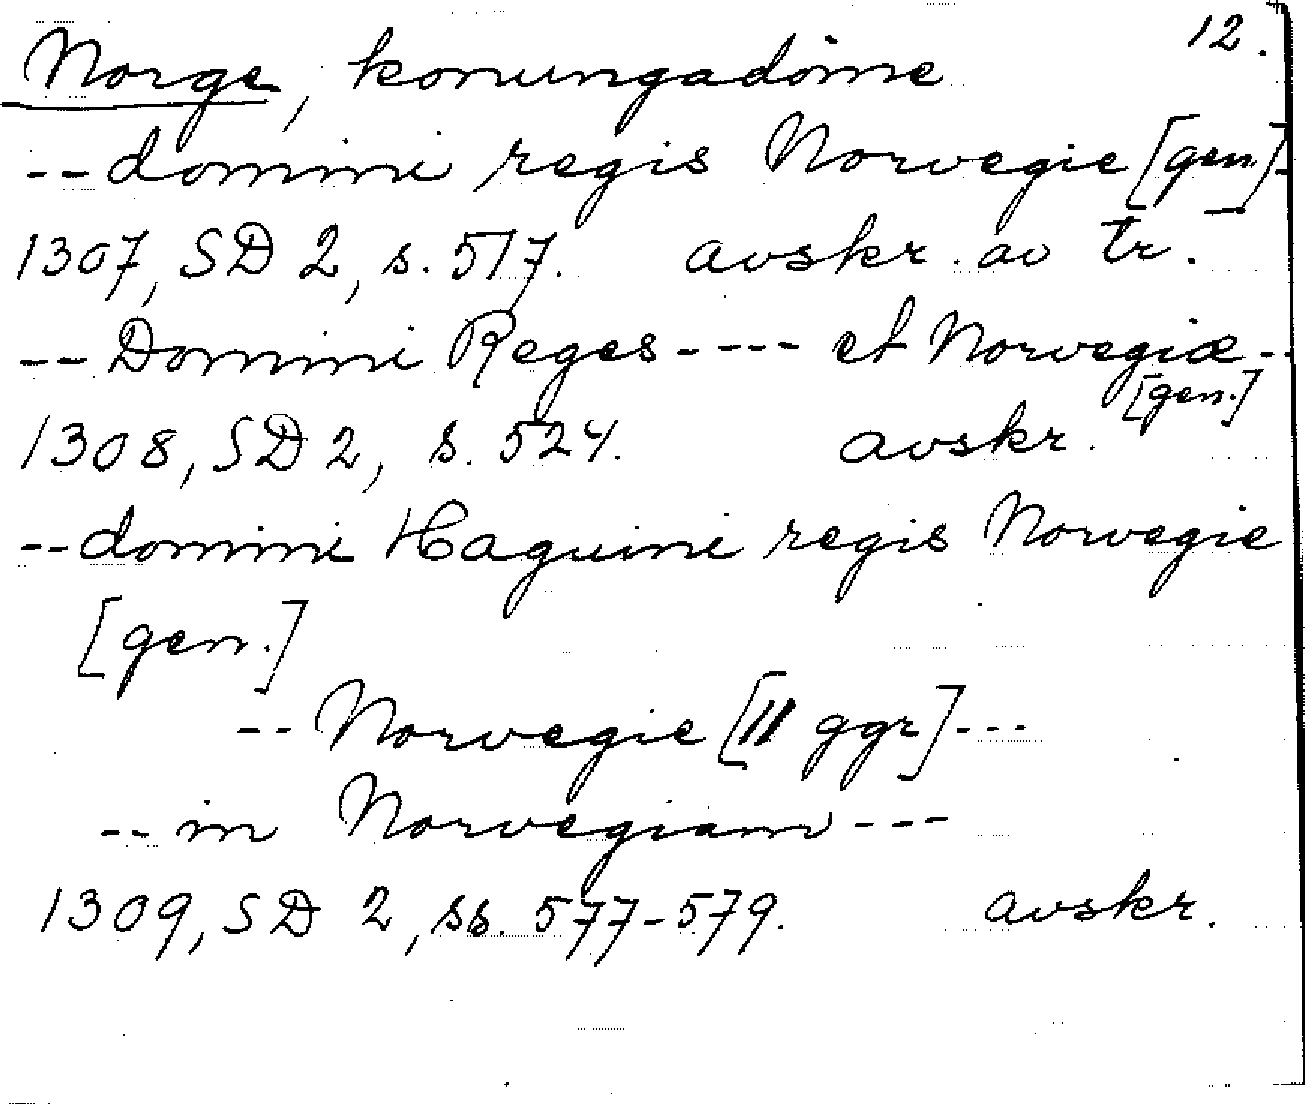 12.
Norge, konungadöme
-- domini regis Norvegie [gen.] -
1307, SD 2, s. 517. avskr. av tr.
-- Domini Reges ---- et Norvegiæ --
[gen.]
1308, SD 2, s. 524. avskr.
-- domini Haquini regis Norvegie
[gen.]
-- Norvegie [II ggr] ---
-- in Norvegiam ---
1309, SD 2, ss. 577-579. avskr.